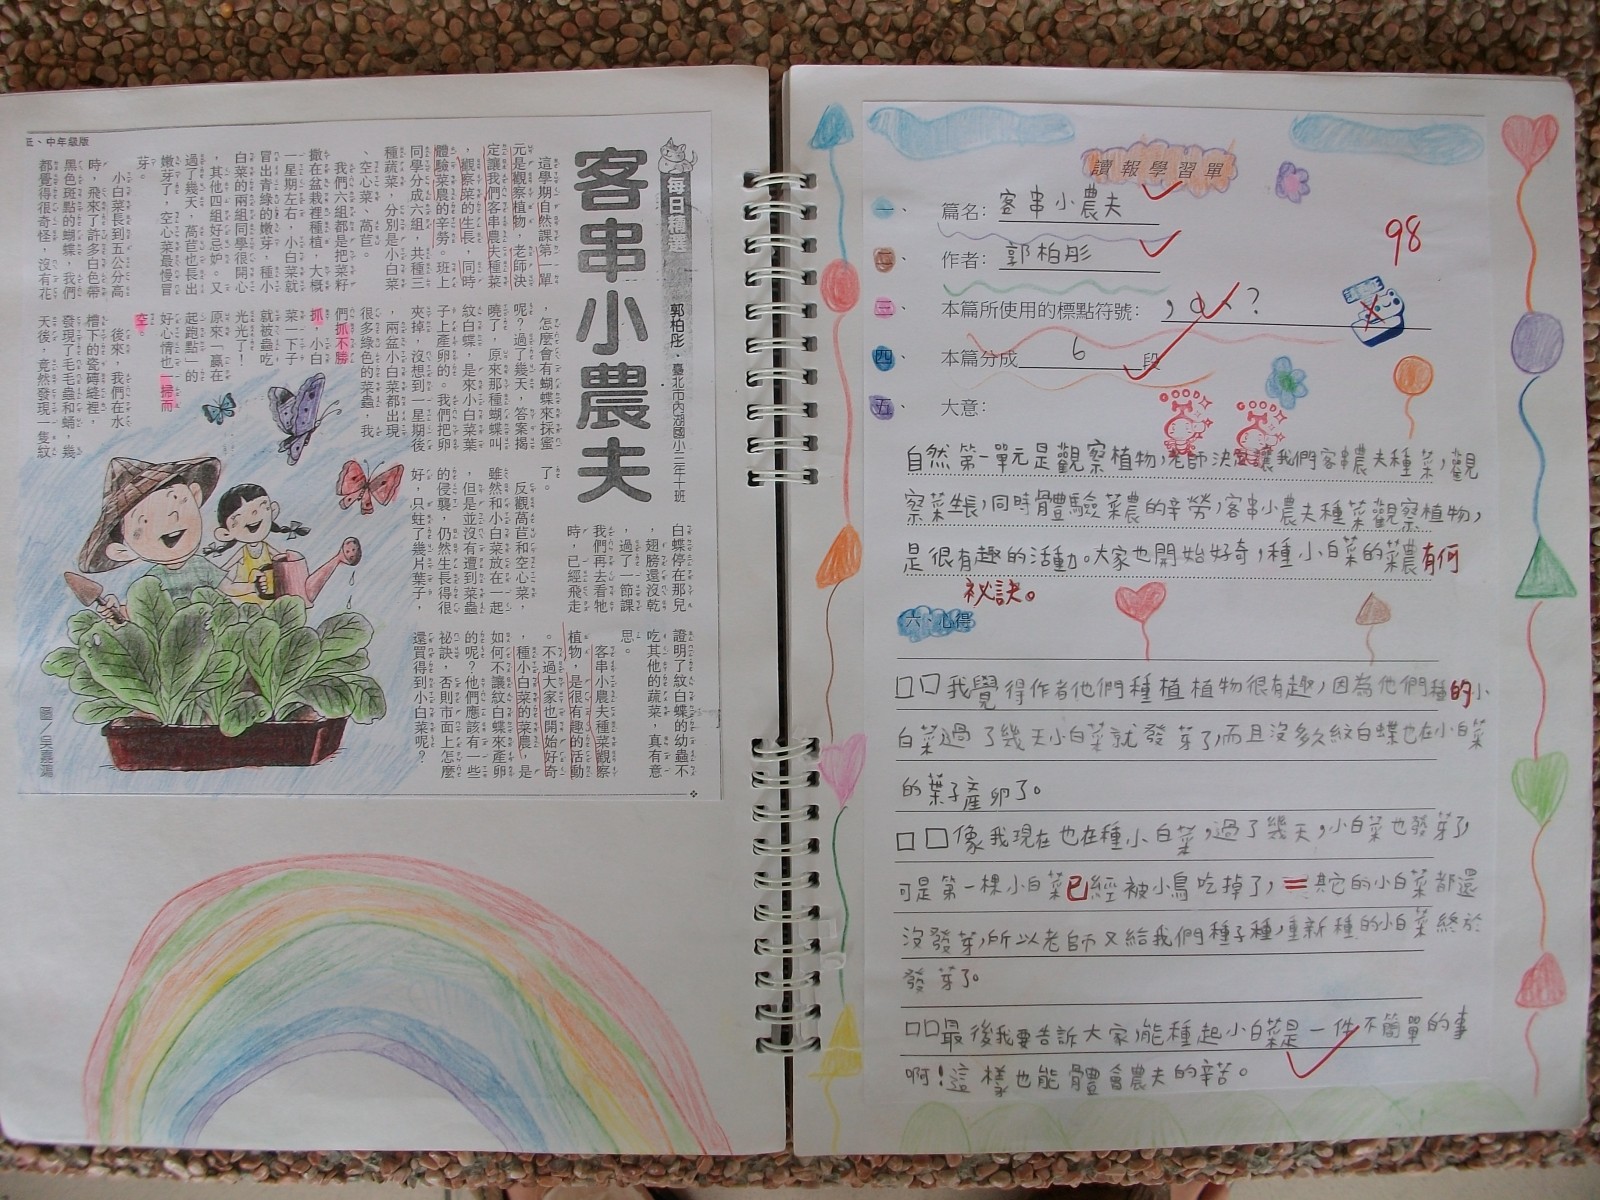 低、中年級版
每日精選
客串小農夫
郭柏彤・臺北市內湖國小三年十班
這學期自然課第一單
元是觀察植物，老師決
定讓我們客串農夫種菜
，觀察菜的生長，同時
體驗菜農的辛勞。班上
同學分成六組，共種三
種蔬菜，分別是小白菜
、空心菜、萵苣。
我們六組都是把菜籽
撒在盆栽裡種植，大概
一星期左右，小白菜就
冒出青綠的嫩芽，種小
白菜的兩組同學很開心
，其他四組好忌妒。又
過了幾天，萵苣也長出
嫩芽了，空心菜最慢冒
芽。
小白菜長到五公分高
時，飛來了許多白色帶
黑色斑點的蝴蝶，我們
都覺得很奇怪，沒有花
，怎麼會有蝴蝶來採蜜
呢？過了幾天，答案揭
曉了，原來那種蝴蝶叫
紋白蝶，是來小白菜葉
子上產卵的。我們把卵
夾掉，沒想到一星期後
，兩盆小白菜都出現
很多綠色的菜蟲，我
們抓不勝
抓，小白
菜一下子
就被蟲吃
光光了！
原來「贏在
起跑點」的
好心情也一掃而
空。
後來，我們在水
槽下的瓷磚縫裡，
發現了毛毛蟲和蛹，幾
天後，竟然發現一隻紋
白蝶停在那兒
，翅膀還沒乾
，過了一節課
我們再去看牠
時，已經飛走
了。
反觀萵苣和空心菜，
雖然和小白菜放在一起
，但是並沒有遭到菜蟲
的侵襲，仍然生長得很
好，只蛀了幾片葉子，
證明了紋白蝶的幼蟲不
吃其他的蔬菜，真有意
思。
客串小農夫種菜觀察
植物，是很有趣的活動
。不過大家也開始好奇
，種小白菜的菜農，是
如何不讓紋白蝶來產卵
的呢？他們應該有一些
祕訣，否則市面上怎麼
還買得到小白菜呢？
圖／吳嘉鴻
讀報學習單
98
一、 篇名：客串小農夫
二、 作者：郭柏彤
三、 本篇所使用的標點符號：，。、？
四、 本篇分成6段
五、 大意：
自然第一單元是觀察植物，老師決定讓我們客串農夫種菜，觀
察菜生長，同時體驗菜農的辛勞，客串小農夫種菜觀察植物，
是很有趣的活動。大家也開始好奇，種小白菜的菜農有何
祕訣。
六、心得
□□我覺得作者他們種植植物很有趣，因為他們種的小
白菜過了幾天小白菜就發芽了，而且沒多久紋白蝶也在小白菜
的葉子產卵了。
□□像我現在也在種小白菜，過了幾天，小白菜也發芽了，
可是第一棵小白菜已經被小鳥吃掉了，其它的小白菜都還
沒發芽，所以老師又給我們種子種，重新種的小白菜終於
發芽了。
□□最後我要告訴大家，能種起小白菜是一件不簡單的事
啊！這樣也能體會農夫的辛苦。